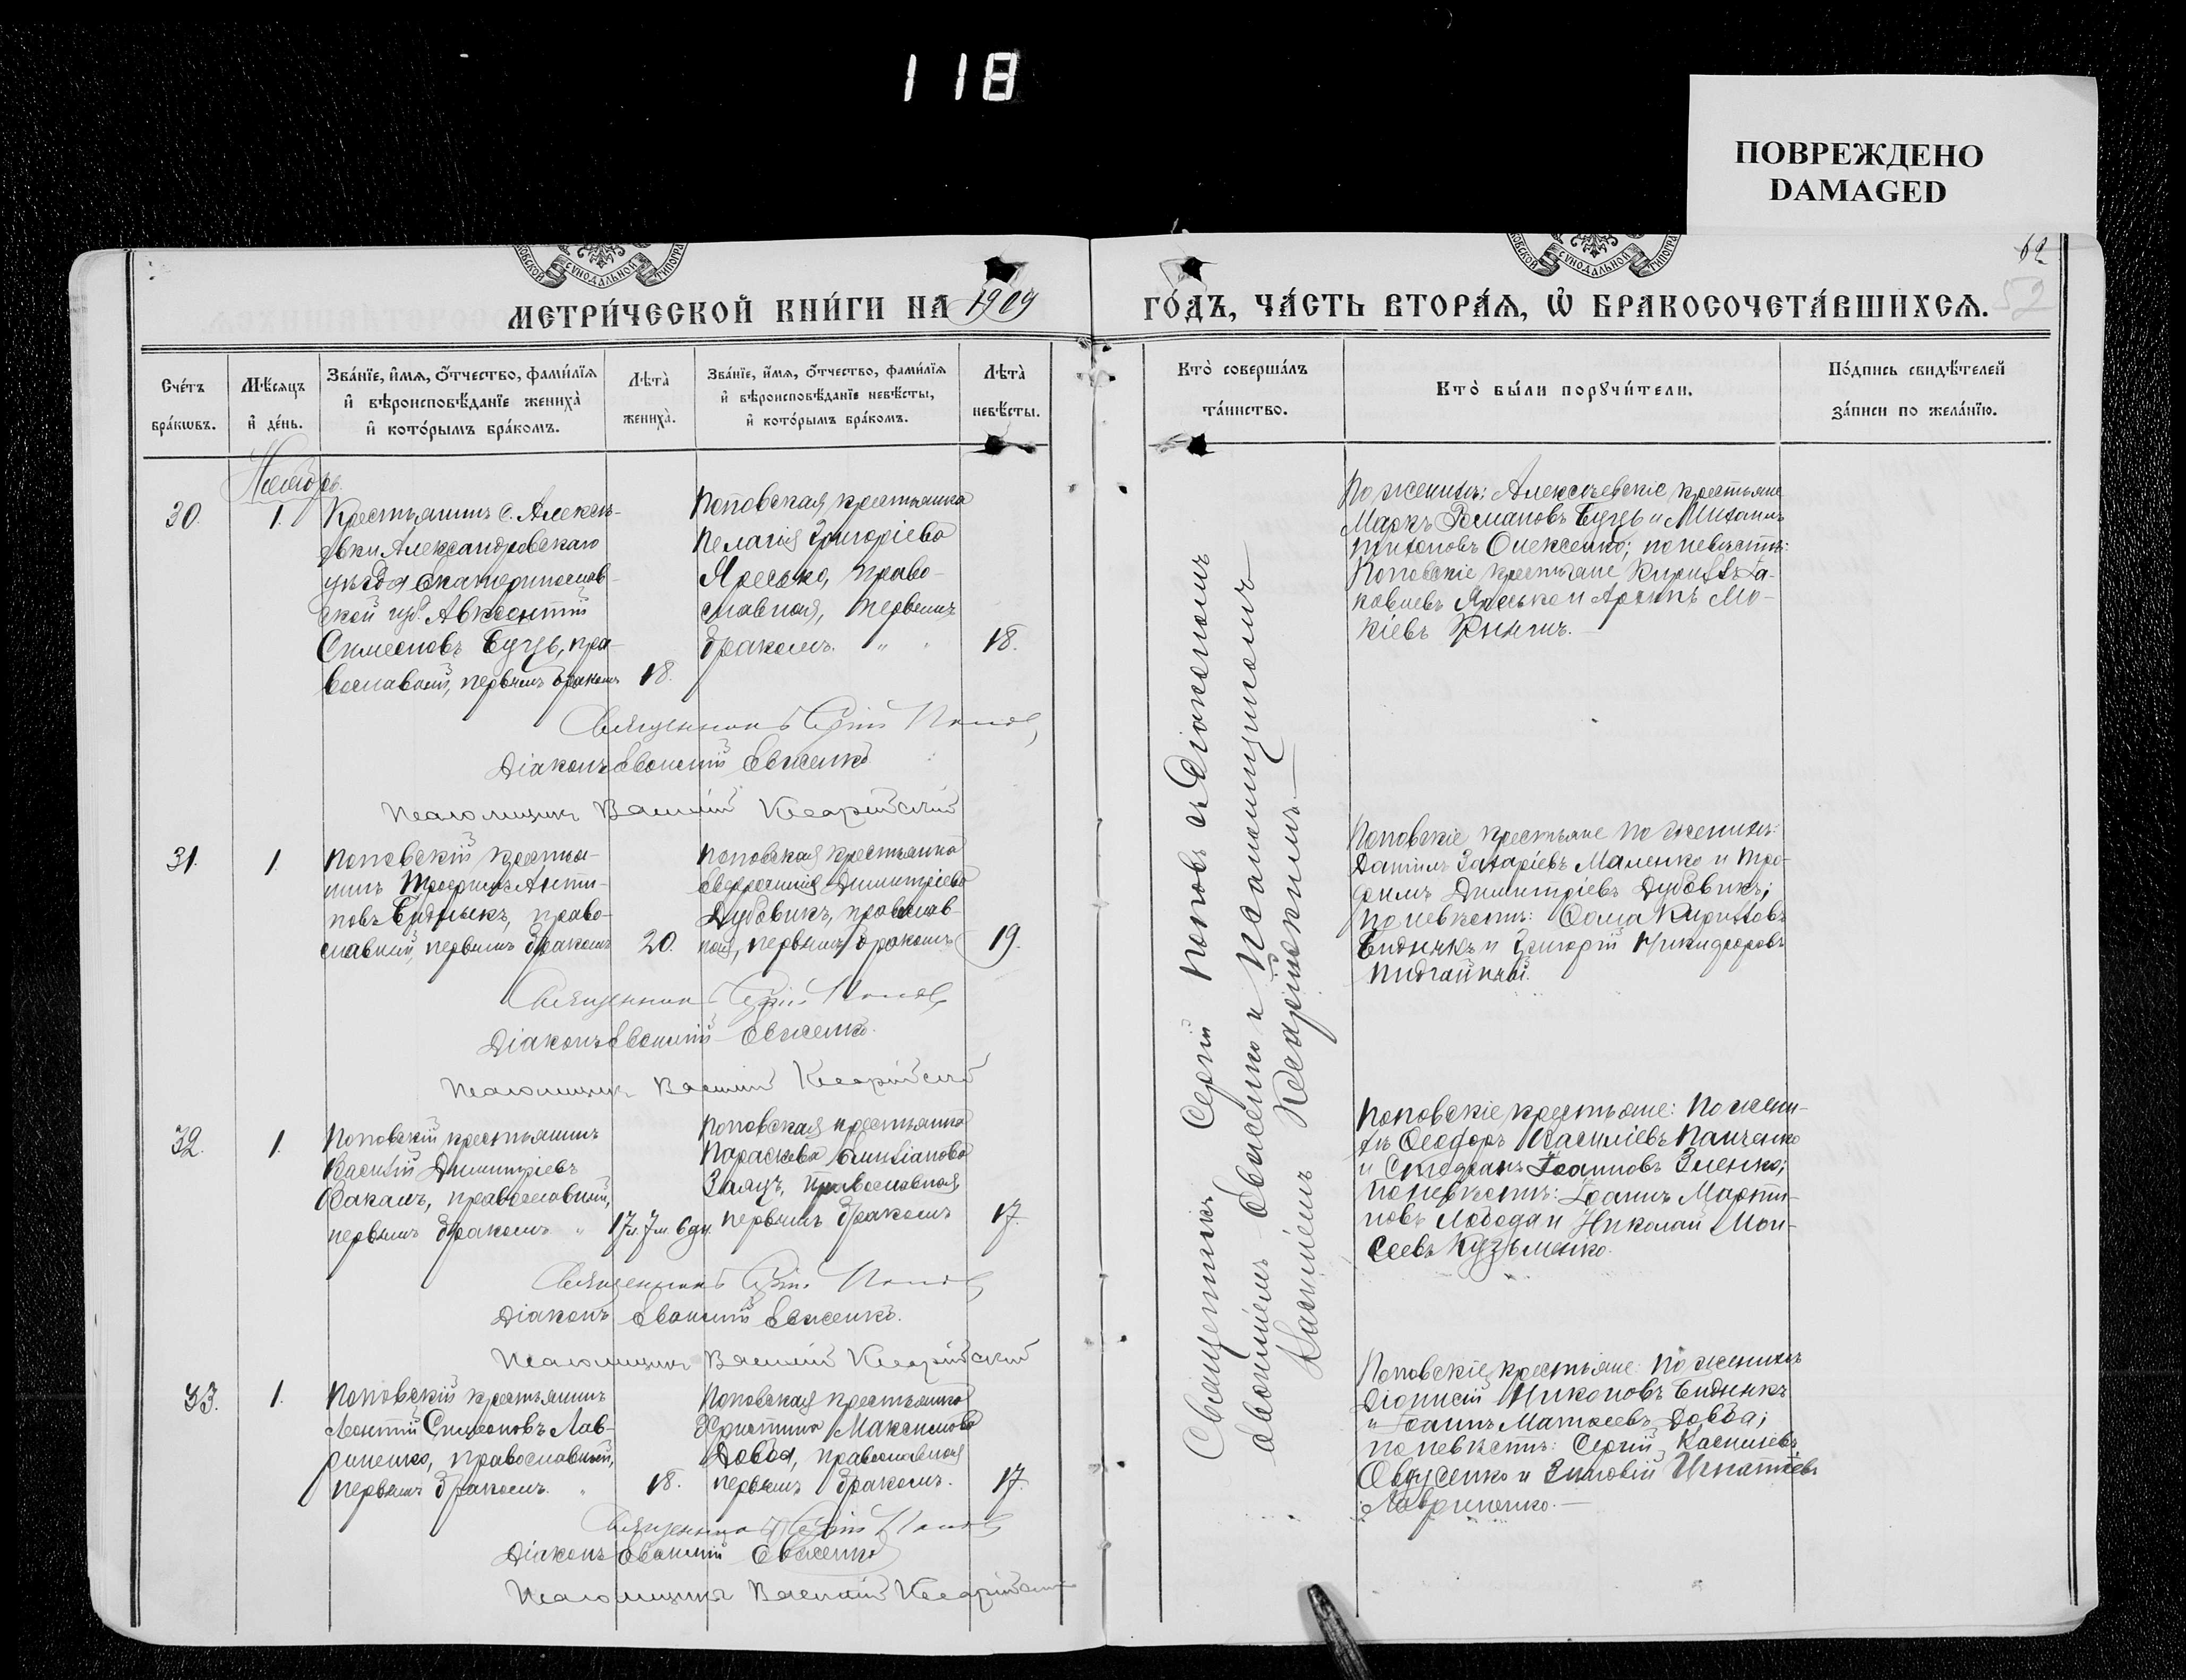 118
ПОВРЕЖДЕНО
DAMAGED
62
52
МЕТРИ́ЧЕСКОЙ КНИ́ГИ НА 1909
ГО́ДЪ, ЧА́СТЬ ВТОРА́Я, Ѡ БРАКОСОЧЕТА́ВШИХСЯ.
Сче́тъ бра́кѡвъ.
Мѣ́сяцъ и҆ де́нь.
Зва́нїе, и҆́мѧ, ѻ҆́тчество, фами́лїѧ
и҆ вѣроисповѣ́данїе жениха̀
и҆ кото́рымъ бра́комъ.
Лѣта̀ жениха̀.
Зва́нїе, и҆́мѧ, ѻ҆́тчество, фами́лїѧ
и҆ вѣроисповѣ́данїе невѣ́сты,
и҆ кото́рымъ бра́комъ.
Лѣта̀ невѣ́сты.
Кто̀ соверша́лъ
та́инство.
Кто̀ бы́ли порꙋчи́тели.
По́дпись свидѣ́телей
за́писи по жела́нїю.
Ноябрь
30.
1.
Крестьянинъ с. Алексѣ-
евки Александровскаго
уѣзда Екатеринослав-
ской губ. Авксентій
Симеоновъ Буць, пра-
вославный, первымъ бракомъ
18.
Поповская крестьянка
Пелагія Григоріева
Яресько, право-
славная, первымъ
бракомъ. " "
18.
По женихѣ: Алексѣевскіе крестьяне
Маркъ Романовъ Буць и Михаилъ
Тихоновъ Олексенко; по невѣстѣ:
Поповскіе крестьяне Кириллъ Іа-
ковлевъ Яресько и Архипъ Мо-
кіевъ
Священникъ Сергій Поповъ
Діаконъ Евсенко
Псаломщикъ Василій Кесарійскій
31.
1.
Поповскій крестья-
нинъ Трофимъ Анти-
повъ Бидныкъ, право-
славный, первымъ бракомъ
20.
Поповская крестьянка
Евфросинія Димитріева
Дубовикъ, православ-
ная, первымъ бракомъ
19.
Поповскіе крестьяне по женихѣ:
Даніилъ Захаріевъ Маленко и Тро-
фимъ Димитріевъ Дубовикъ;
по невѣстѣ: Ѳома Кирилловъ
Биднык и Григорій Никифоровъ
Пидгайный.
Священникъ Сергій Поповъ
Діаконъ Евсенко.
Псаломщикъ Василій Кесарійскій
32.
1.
Поповскій крестьянинъ
Василій Димитріевъ
православный,
первымъ бракомъ "
17 л. 7 м. 6 дн.
Поповская крестьянка
Параскева Емиліанова
Заяцъ, православная,
первымъ бракомъ
17.
Поповскіе крестьяне: По жени-
хѣ Ѳеодоръ Василіевъ Панченко
и Стефанъ Іоанновъ Зленко;
по невѣстѣ: Іоаннъ Марти-
новъ Лобода и Николай Мои-
сеевъ Кузьменко.
Священникъ Сергій Поповъ
Діаконъ Евсенко.
Псаломщикъ Василій Кесарійскій
33.
1.
Поповскій крестьянинъ
Леонтій Симеоновъ Лав-
риненко, православный,
первымъ бракомъ. "
18.
Поповская крестьянка
Христина Максимова
Довбя, православная
первымъ бракомъ.
17.
Поповскіе крестьяне: По женихѣ
Діонисій Никоновъ Биднык
" Іоаннъ Матѳеевъ Довбя;
по невѣстѣ: Сергій Василіевъ
Овдусенко и Зиновій Игнатіевъ
Лавриненко. —
Священникъ Сергій Поповъ
Діаконъ Евсенко
Псаломщикъ Василій Кесарійскій
Священникъ Сергій Поповъ съ Діакономъ
Евсенко и Псаломщикомъ
Василіемъ Кесарійскимъ. —